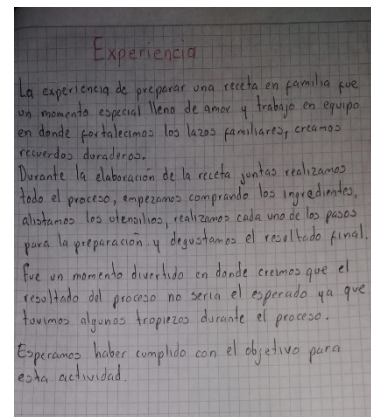 Experiencia
La experiencia de preparar una receta en familia fue
un momento especial lleno de amor y trabajo en equipo
en donde fortalecimos los lazos familiares, creamos
recuerdos duraderos.
Durante la elaboración de la receta juntas realizamos
todo el proceso, empezamos comprando los ingredientes,
alistamos los utensilios, realizamos cada uno de los pasos
para la preparación y degustamos el resultado final.
fue un momento divertido en donde creimos que el
resultado del proceso no seria el esperado ya que
tuvimos algunos tropiezos durante el proceso.
Esperamos haber cumplido con el objetivo para
esta actividad.